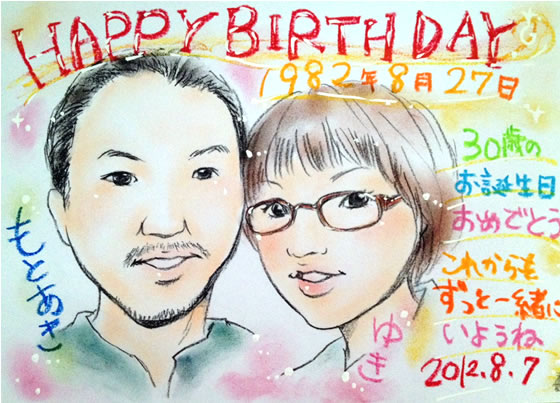 HAPPY BIRTHDAY
1982年8月27日
30歳の
お誕生日
おめでとう
これからも
ずっと一緒に
いようね
2012.8.7
もとあき
ゆき